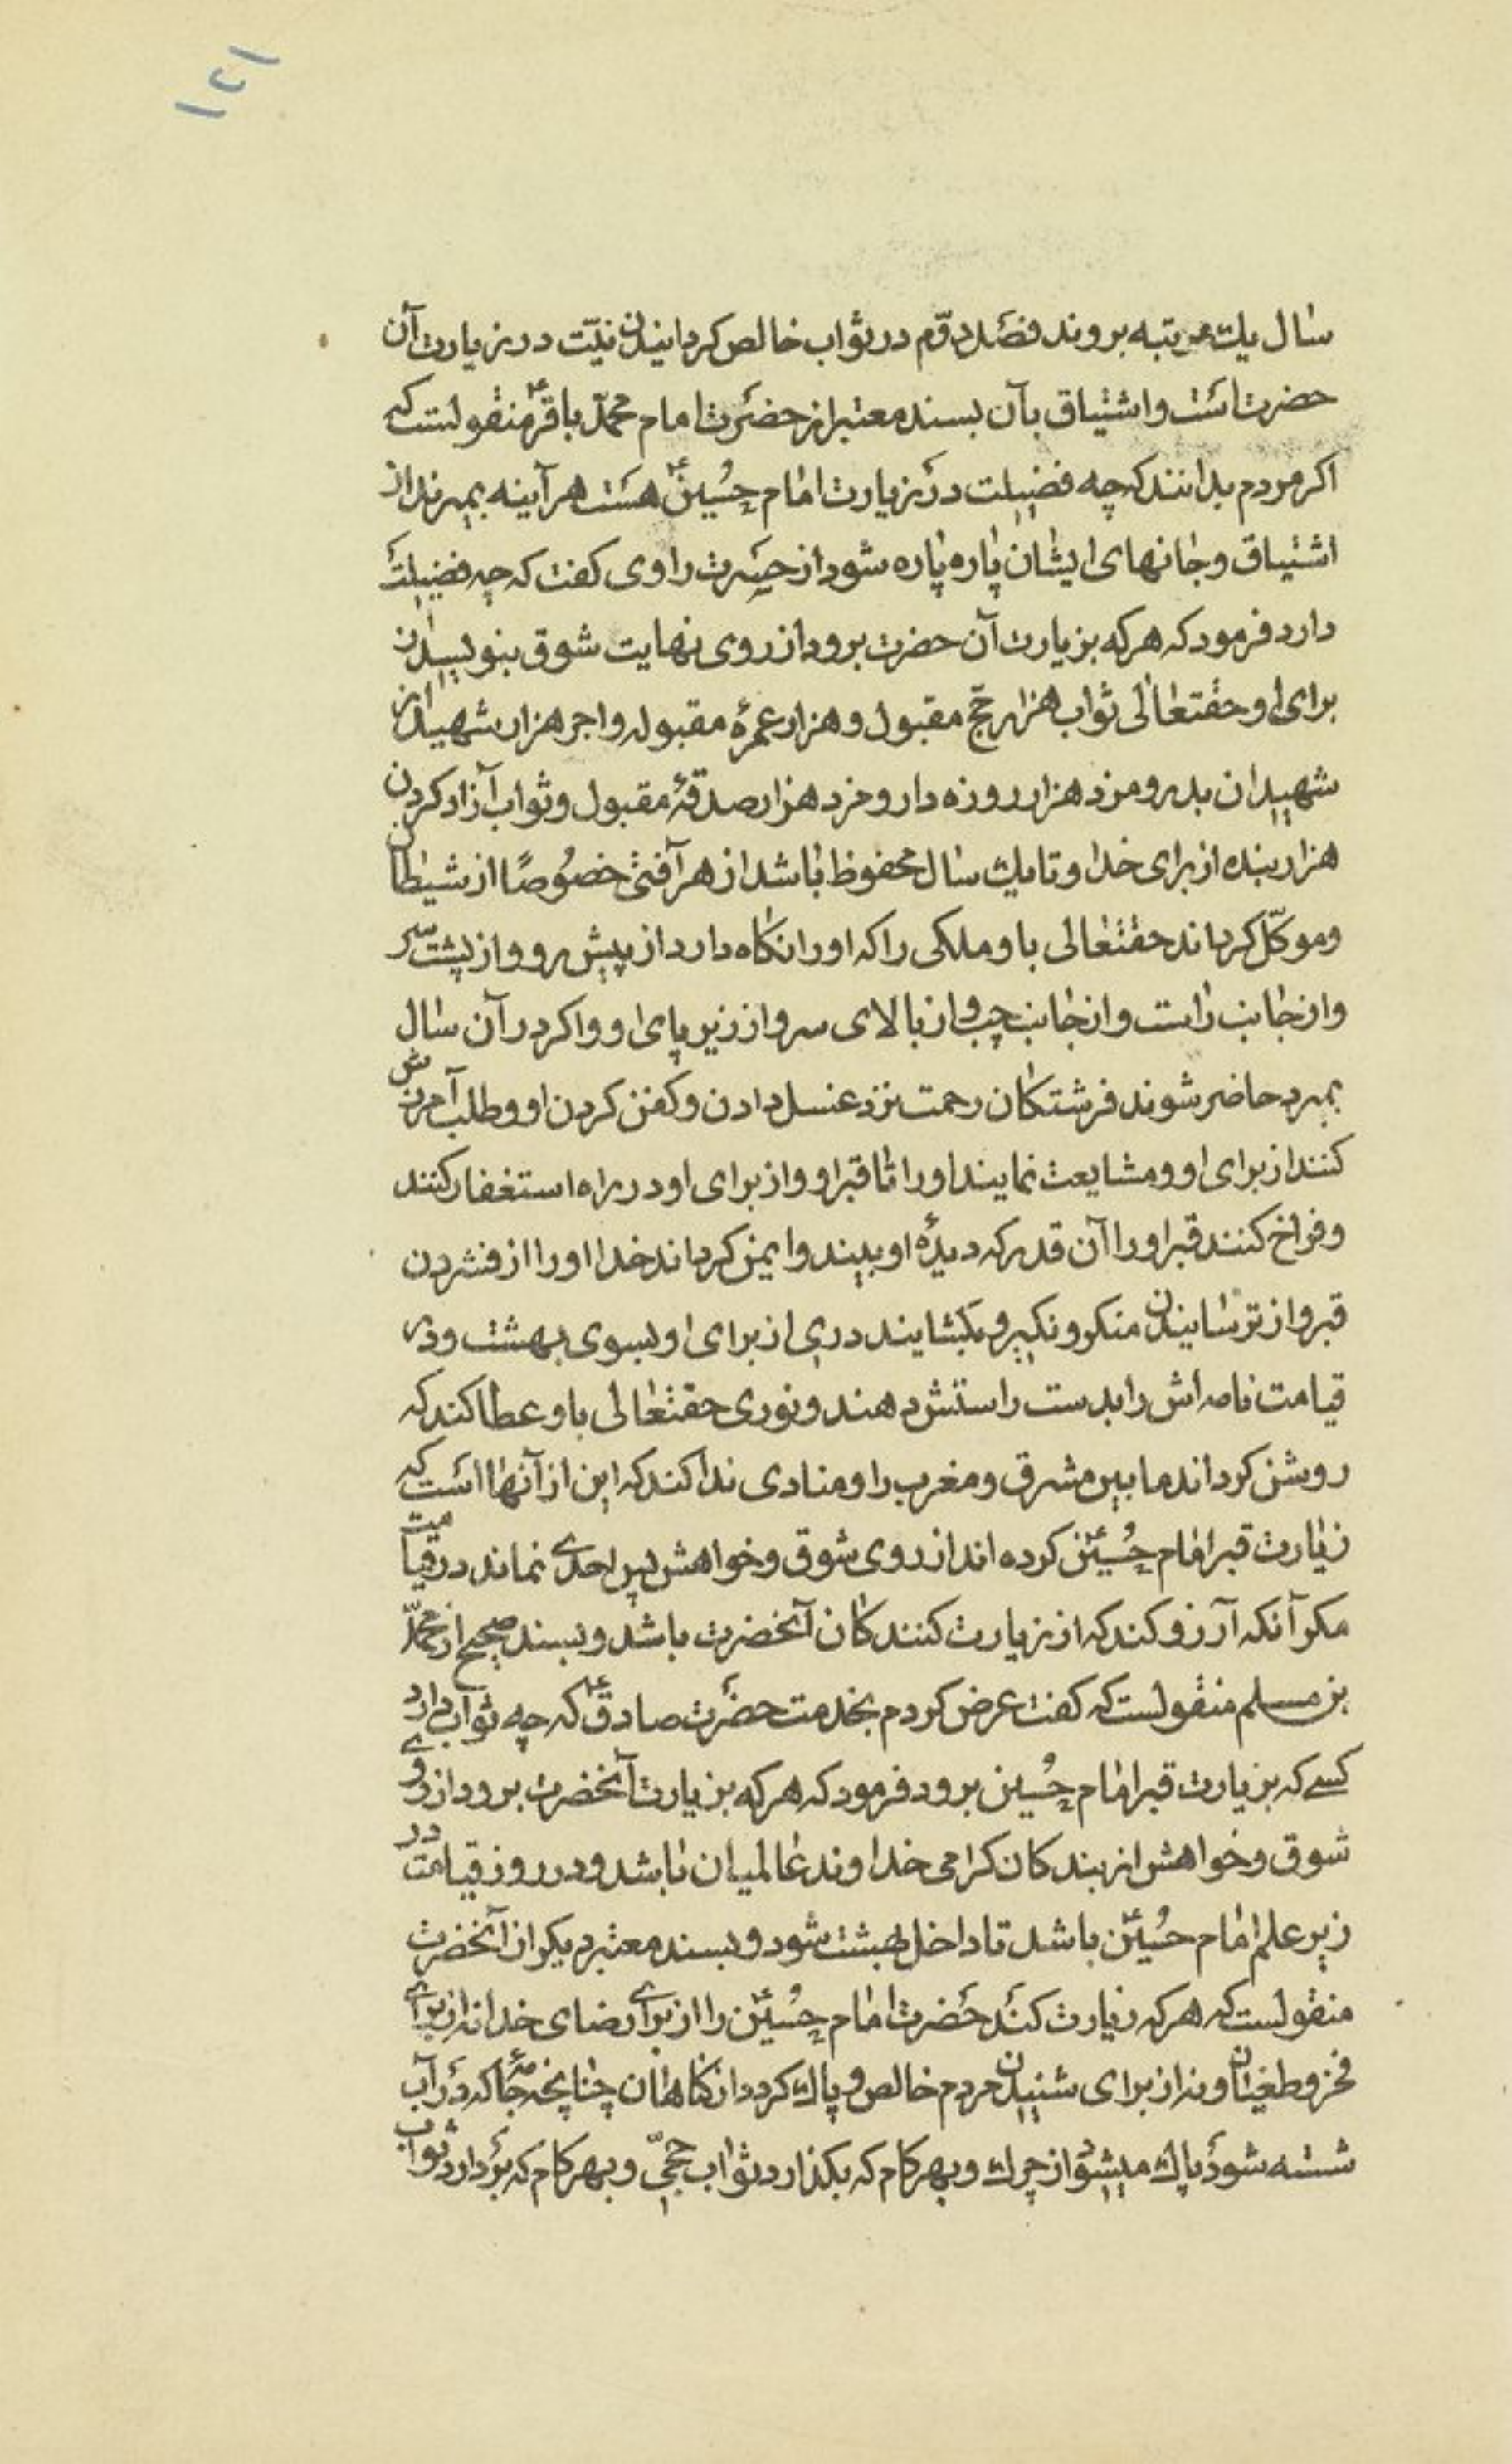 ۱۲۱
سال یك مرتبه بروند فصل دوّم در ثواب خالص کردانیدن نیّت در زیارت آن
حضرت است و اشتیاق بآن بسند معتبر از حضرت امام محمّد باقرؑ منقولست که
اکر مردم بدانند که چه فضیلت در زیارت امام حُسینؑ هست هر آینه بمیرند از
اشتیاق و جانهای ایشان پاره پاره شود از حسرت راوی کفت که چه فضیلت
دارد فرمود که هر که بزیارت آن حضرت برود از روی نهایت شوق بنویسند
برای او حقتعالی ثواب هزار حجّ مقبول و هزار عمرۀ مقبوله و اجر هزار شهید از
شهیدان بدر و مزد هزار روزه دار و مزد هزار صدقۀ مقبول و ثواب آزاد کردن
هزار بنده از برای خدا و تا یك سال محفوظ باشد از هر آفتی خصُوصًا از شیطان
و موکّل کرداند حقتعالی باو ملکی را که او را نکاه دارد از پیش رو و از پشت سر
و از جانب راست و از جانب چپ و از بالای سر و از زیر پای او و اکر در آن سال
بمیرد حاضر شوند فرشتکان رحمت نزد غسل دادن و کفن کردن او و طلب آمرزش
کنند از برای او و مشایعت نمایند او را تا قبر او و از برای او در راه استغفار کنند
و فراخ کنند قبر او را آن قدر که دیدۀ او بیند و ایمن کرداند خدا او را از فشردن
قبر و از ترسانیدن منکر و نکیر و بکشایند دری از برای او بسوی بهشت و در
قیامت نامه اش را بدست راستش دهند و نوری حقتعالی باو عطا کند که
روشن کرداند ما بین مشرق و مغرب را و منادی ندا کند که این از آنها است که
زیارت قبر امام حُسینؑ کرده اند از روی شوق و خواهش پس احدی نماند در قیامت
مکر آنکه آرزو کند که از زیارت کنندکان آنحضرت باشد و بسند صحیح از محمّد
بن مسلم منقولست که کفت عرض کردم بخدمت حضرت صادقؑ که چه ثواب دارد
کسی که بزیارت قبر امام حُسین برود فرمود که هر که بزیارت آنحضرت برود از روی
شوق و خواهش از بندکان کرامی خداوند عالمیان باشد و در روز قیامت در
زیر علم امام حُسینؑ باشد تا داخل بهشت شود و بسند معتبر دیکر از آنحضرت
منقولست که هر که زیارت کند حضرت امام حُسینؑ را از برای رضای خدا نه از برای
فخر و طغیان و نه از برای شنیدن مردم خالص و پاك کردد از کناهان چنانچه جامۀ که در آب
شسته شود پاك میشود از چرك و بهر کام که بکذارد ثواب حجّی و بهر کام که بردارد ثواب